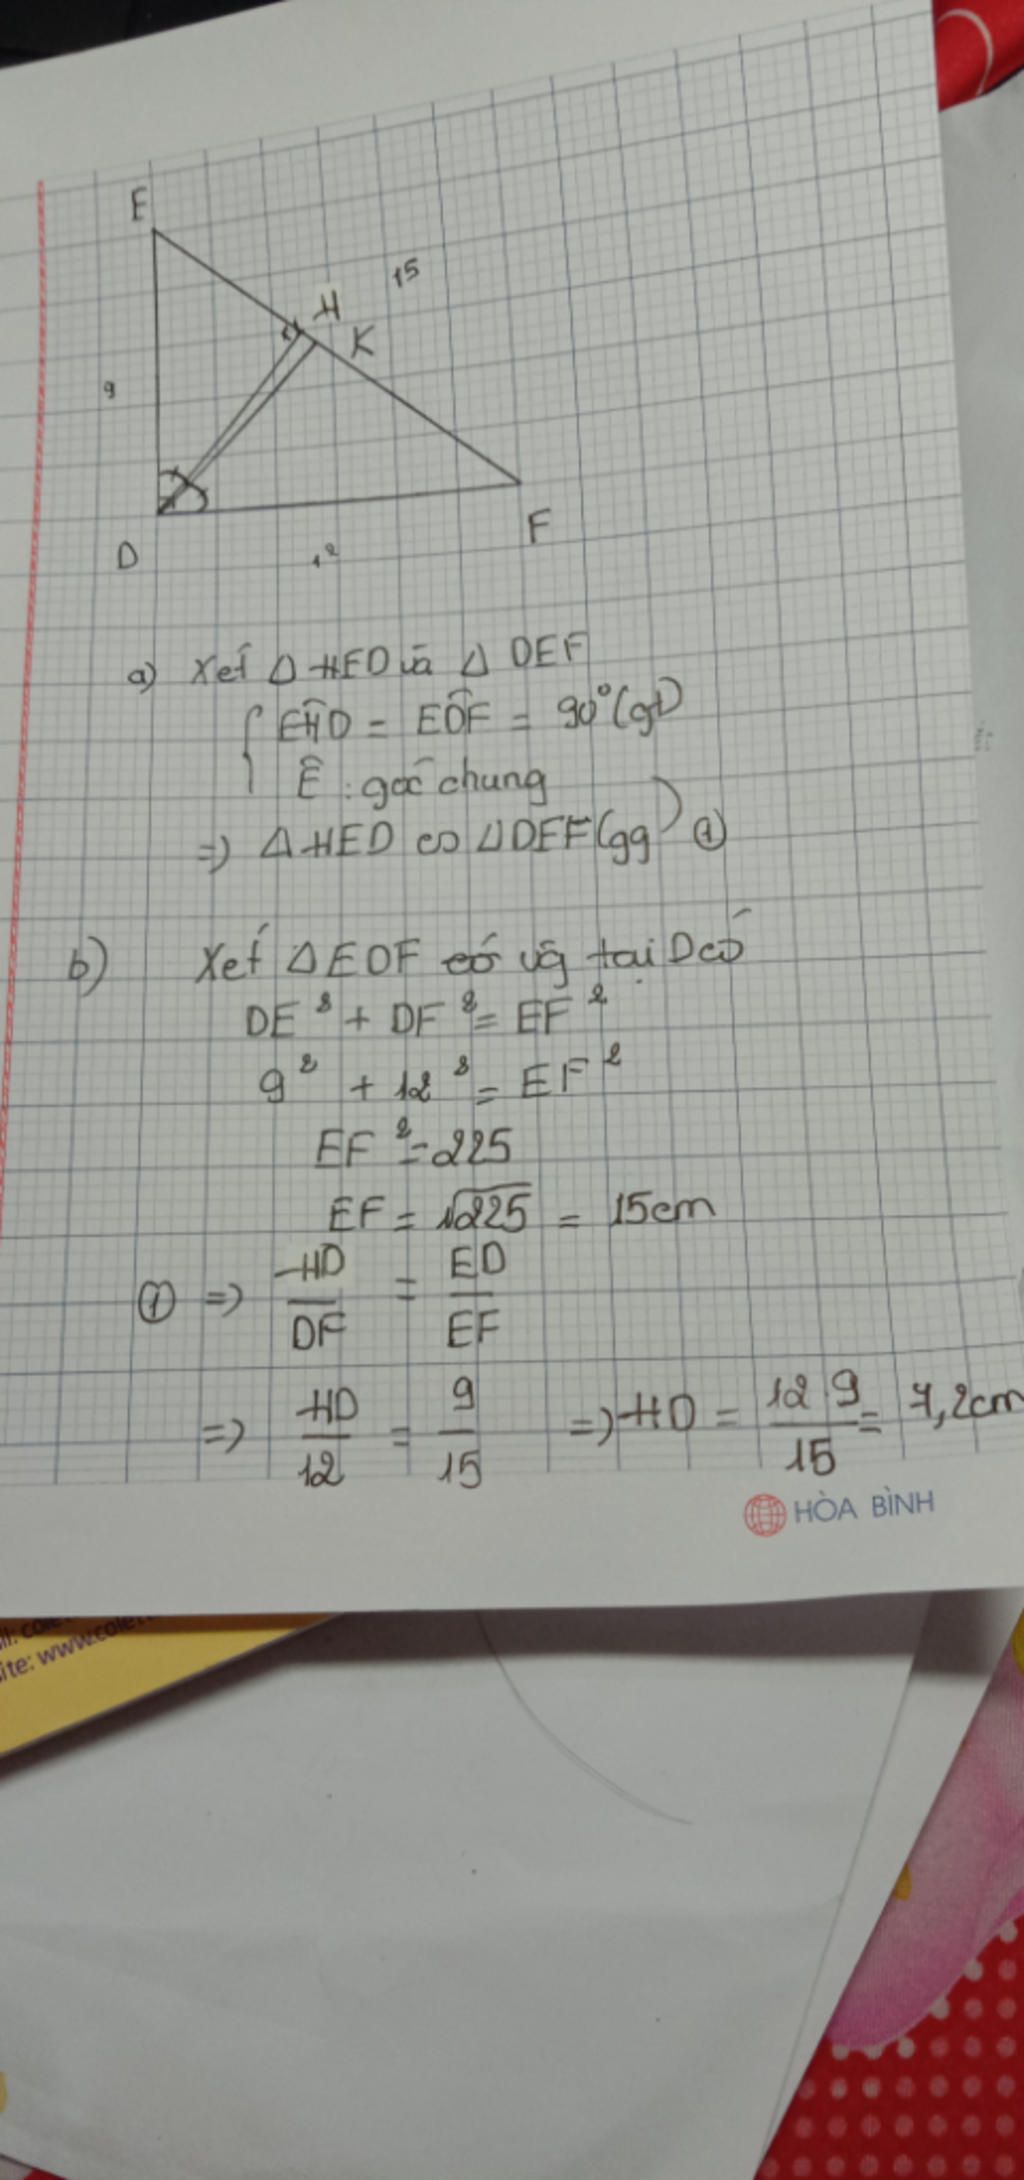 E
15
H
K
9
D
12
F
a) Xét Δ HED và Δ DEF
EĤD = ED̂F = 90° (gt)
Ê : góc chung
=> Δ HED ∽ ΔDEF (gg) ①
b) Xét ΔEDF có vg tại D có
DE² + DF² = EF²
9² + 12² = EF²
EF² = 225
EF = √225 = 15cm
① => HD/DF = ED/EF
=> HD/12 = 9/15 => HD = 12.9/15 = 7,2cm
HÒA BÌNH
site: www.colet